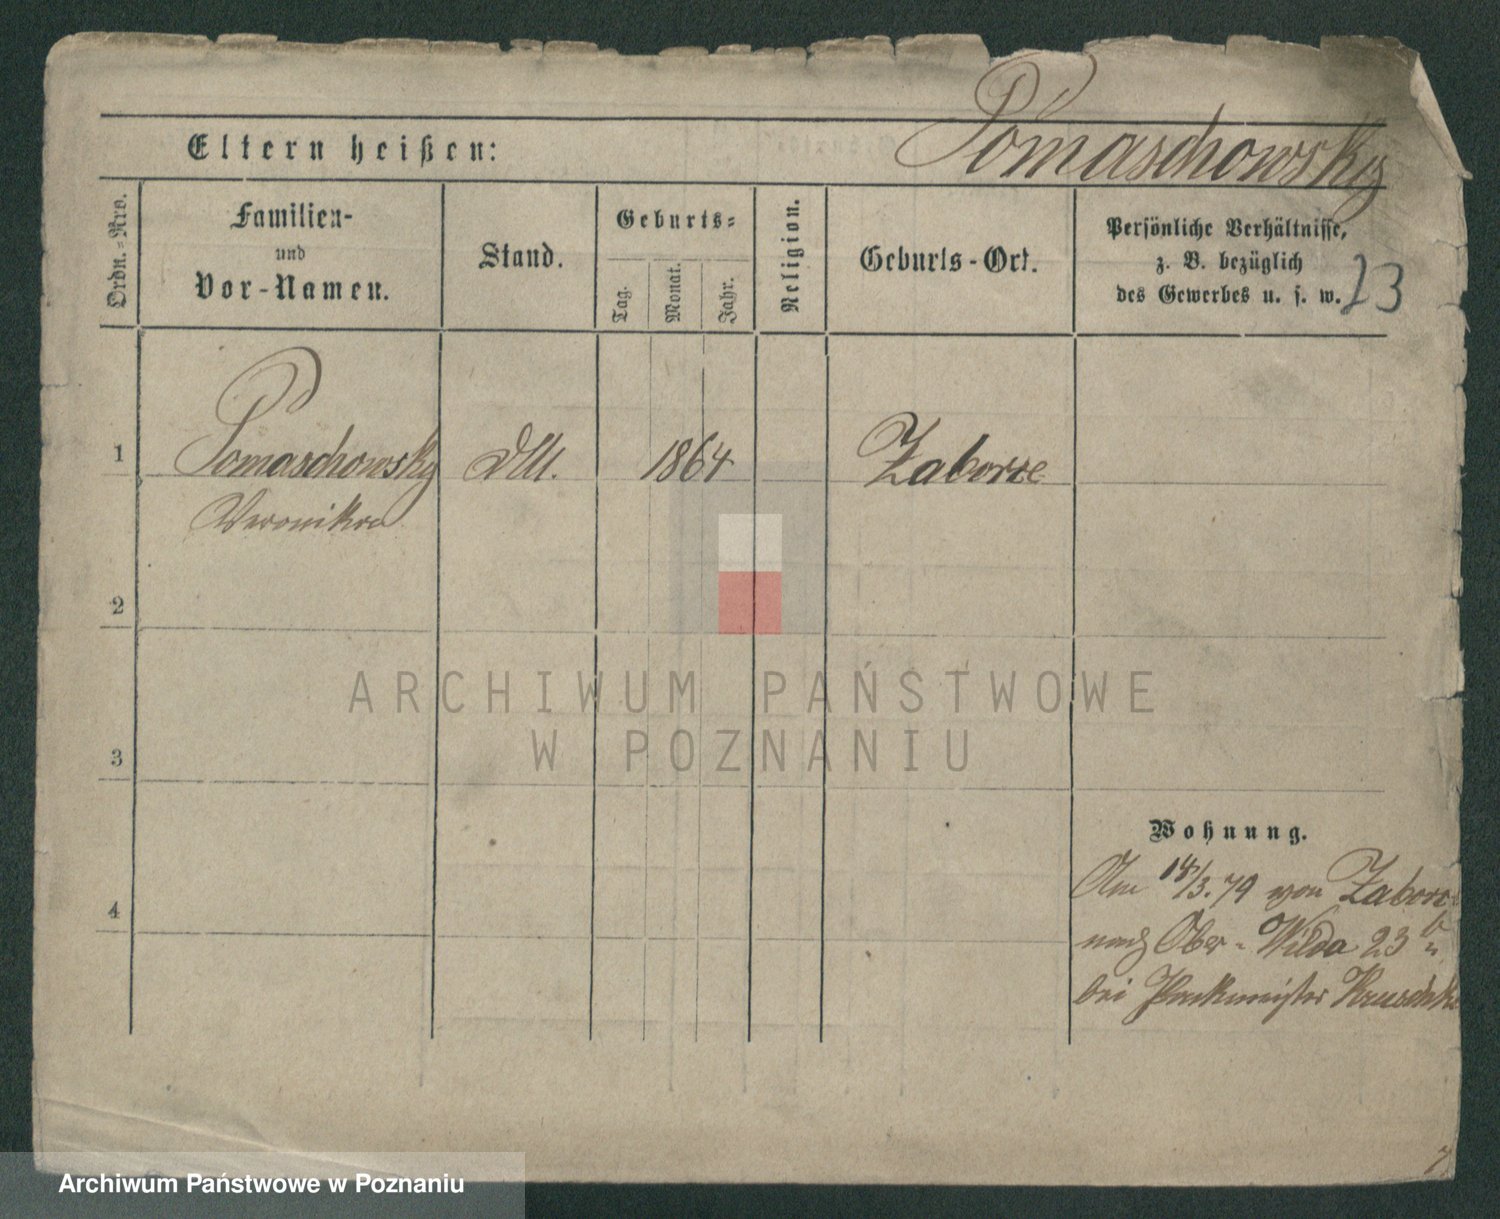 Tomaschowsky
Eltern heißen:
Ordn.-Nro.
Familien-
und
Vor-Namen.
Stand.
Geburts-
Tag.
Monat.
Jahr.
Religion.
Geburts-Ort.
Persönliche Verhältnisse,
z. B. bezüglich
des Gewerbes u. s. w.
23
1 Tomaschowsky 1864 Zaborze
Veronika
2
3
4
Wohnung.
Am 14/3.79 von
nach Ober-Wilda 23 b
bei
ARCHIWUM PAŃSTWOWE
W POZNANIU
Archiwum Państwowe w Poznaniu